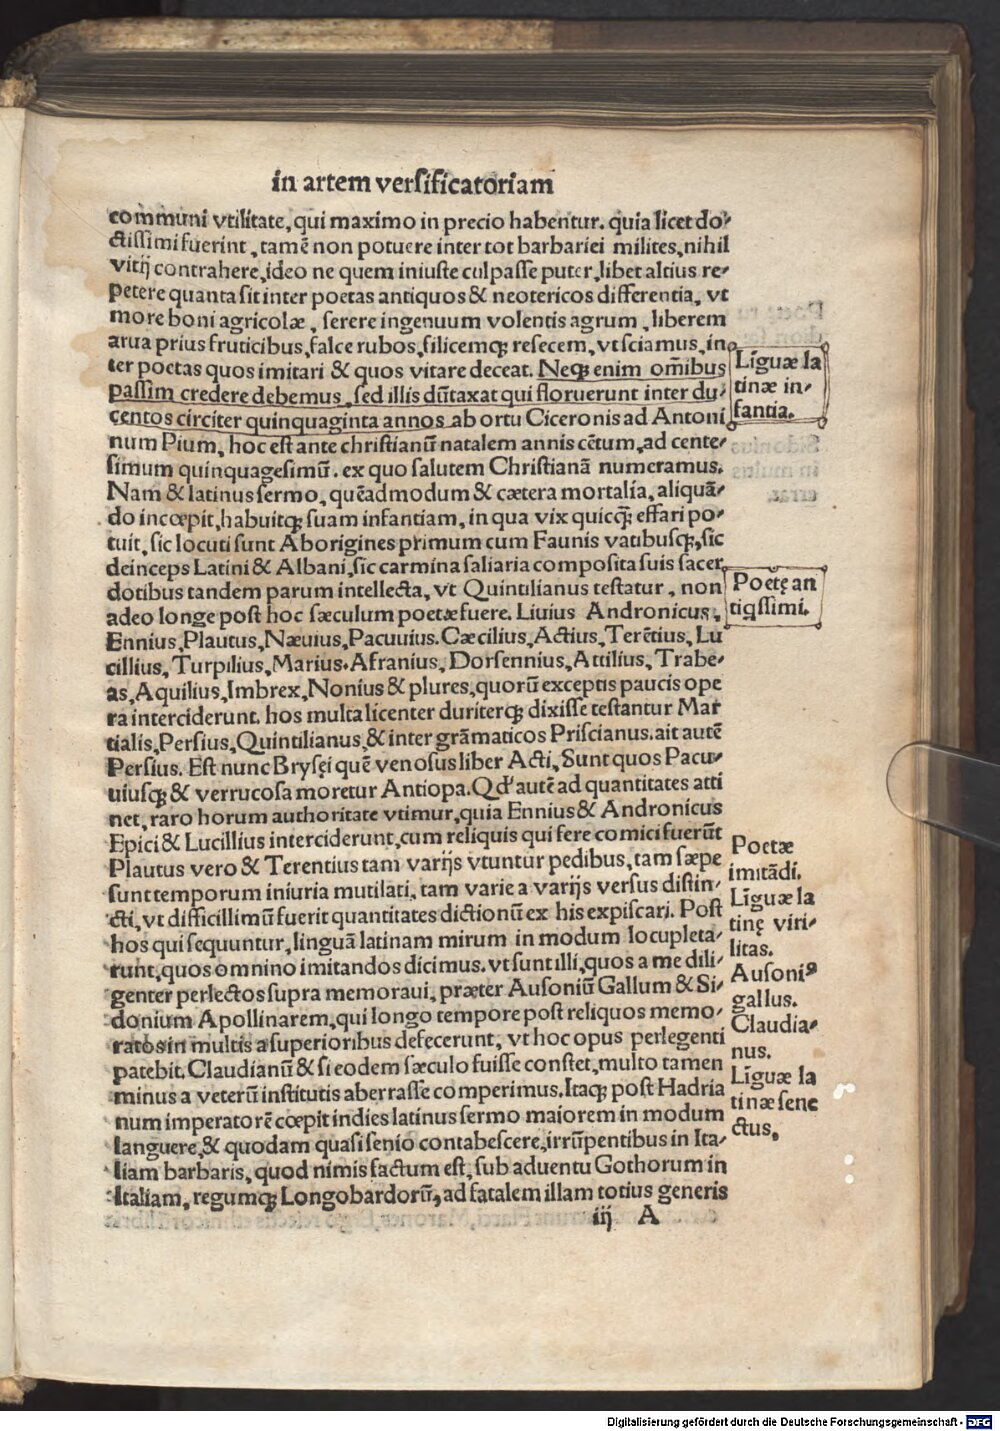 in artem versificatoriam
communi vtilitate, qui maximo in precio habentur. quia licet do-
ctissimi fuerint, tamē non potuere inter tot barbariei milites, nihil
vitij contrahere, ideo ne quem iniuste culpasse puter, libet altius re-
petere quanta sit inter poetas antiquos & neotericos differentia, vt
more boni agricolæ, serere ingenuum volentis agrum, liberem
arua prius fruticibus, falce rubos, filicemq; resecem, vt sciamus, in
ter poetas quos imitari & quos vitare deceat. Neq; enim om̄ibus
passim credere debemus, sed illis dūtaxat qui floruerunt inter du-
centos circiter quinquaginta annos ab ortu Ciceronis ad Antoni
num Pium, hoc est ante christianū natalem annis cētum, ad cente-
simum quinquagesimū. ex quo salutem Christianā numeramus.
Nam & latinus sermo, quēadmodum & cætera mortalia, aliquā-
do incœpit, habuitq; suam infantiam, in qua vix quicq̄; effari po-
tuit, sic locuti sunt Aborigines primum cum Faunis vatibusq;, sic
deinceps Latini & Albani, sic carmina saliaria composita suis sacer
dotibus tandem parum intellecta, vt Quintilianus testatur, non
adeo longe post hoc sæculum poetæ fuere. Liuius Andronicus,
Ennius, Plautus, Næuius, Pacuuius. Cæcilius, Actius, Terētius, Lu
cillius, Turpilius, Marius. Afranius, Dorsennius, Attilius, Trabe-
as, Aquilius, Imbrex, Nonius & plures, quorū exceptis paucis ope
ra interciderunt. hos multa licenter duriterq; dixisse testantur Mar
tialis, Persius, Quintilianus, & inter grāmaticos Priscianus. ait autē
Persius. Est nunc Brysęi quē venosus liber Acti, Sunt quos Pacu-
uiusq; & verrucosa moretur Antiopa. Qđ autē ad quantitates atti
net, raro horum authoritate vtimur, quia Ennius & Andronicus
Epici & Lucillius interciderunt, cum reliquis qui fere comici fuerūt
Plautus vero & Terentius tam varijs vtuntur pedibus, tam sæpe
sunt temporum iniuria mutilati, tam varie a varijs versus distin-
cti, vt difficillimū fuerit quantitates dictionū ex his expiscari. Post
hos qui sequuntur, linguā latinam mirum in modum locupleta-
runt, quos omnino imitandos dicimus. vt sunt illi, quos a me dili-
genter perlectos supra memoraui, præter Ausoniū Gallum & Si-
donium Apollinarem, qui longo tempore post reliquos memo-
ratos in multis a superioribus defecerunt, vt hoc opus perlegenti
patebit. Claudianū & si eodem sæculo fuisse constet, multo tamen
minus a veterū institutis aberrasse comperimus. Itaq; post Hadria
num imperatorē cœpit indies latinus sermo maiorem in modum
languere, & quodam quasi senio contabescere, irrūpentibus in Ita-
liam barbaris, quod nimis factum est, sub aduentu Gothorum in
Italiam, regumq; Longobardorū, ad fatalem illam totius generis
iij A
Linguæ la
tinæ in-
fantia.
Poetę an
tiqssimi.
Poetæ
imitādi.
Linguæ la
tinę viri-
litas.
Ausoniꝰ
gallus.
Claudia-
nus.
Linguæ la
tinæ sene
ctus.
Digitalisierung gefördert durch die Deutsche Forschungsgemeinschaft - DFG